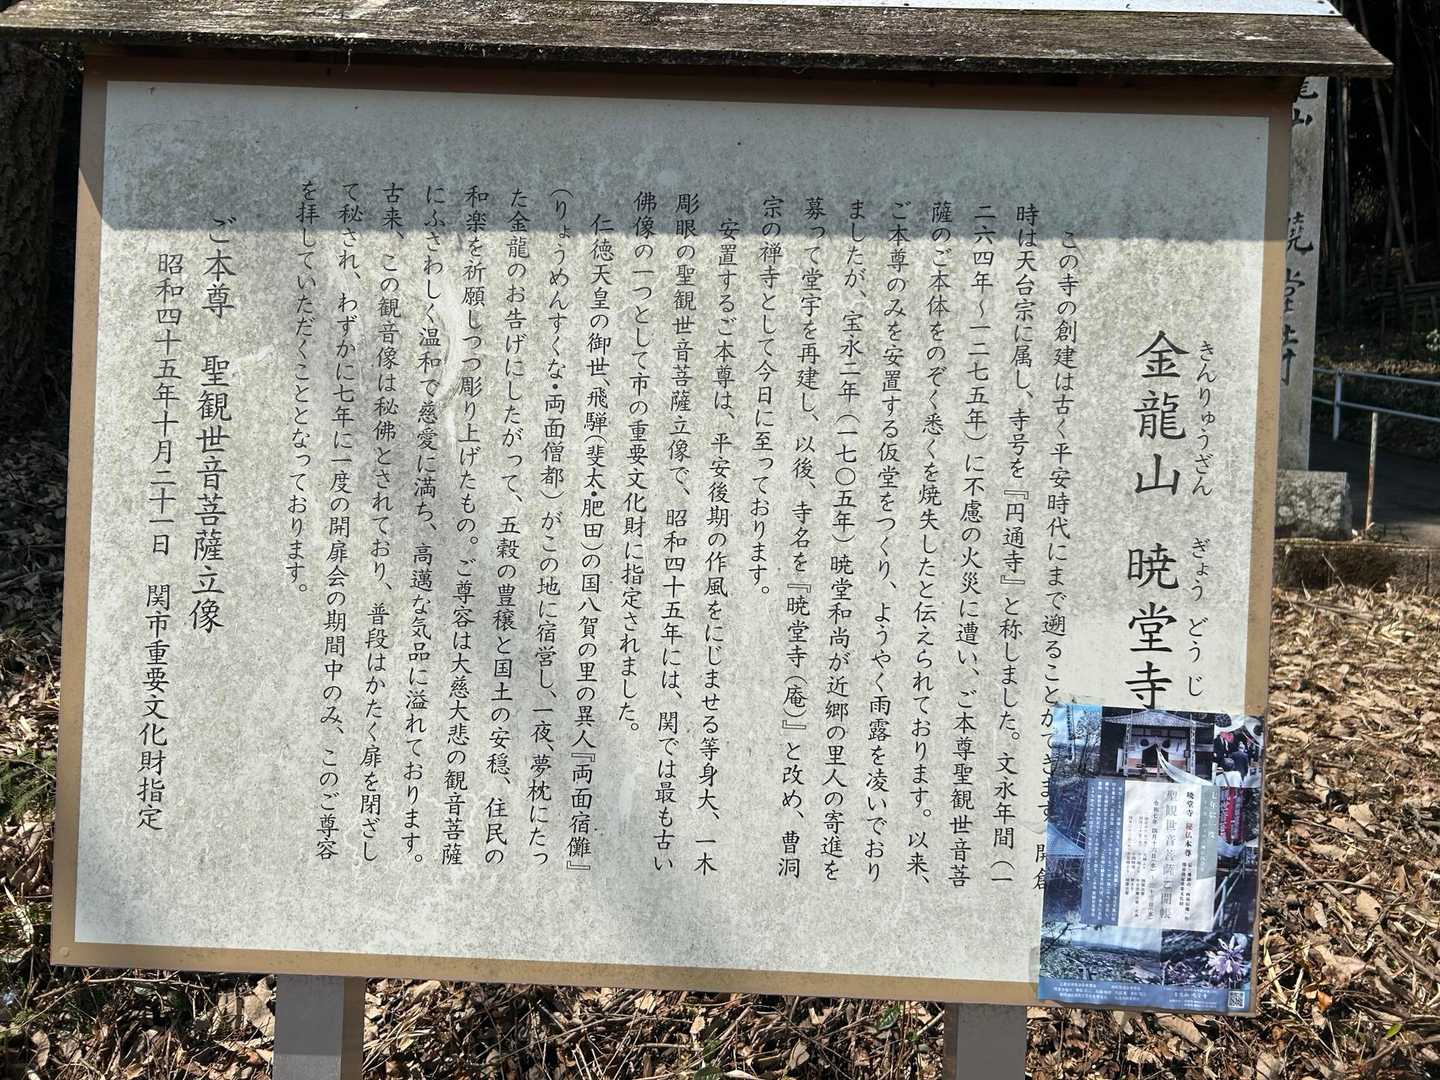 金龍山 暁堂寺
きんりゅうざん ぎょう どうじ
この寺の創建は古く平安時代にまで遡ることができます。開創
時は天台宗に属し、寺号を『円通寺』と称しました。文永年間(一
二六四年～一二七五年)に不慮の火災に遭い、ご本尊聖観世音菩
薩のご本体をのぞく悉くを焼失したと伝えられております。以来、
ご本尊のみを安置する仮堂をつくり、ようやく雨露を凌いでおり
ましたが、宝永二年(一七〇五年)暁堂和尚が近郷の里人の寄進を
募って堂宇を再建し、以後、寺名を『暁堂寺(庵)』と改め、曹洞
宗の禅寺として今日に至っております。
安置するご本尊は、平安後期の作風をにじませる等身大、一木
彫眼の聖観世音菩薩立像で、昭和四十五年には、関では最も古い
佛像の一つとして市の重要文化財に指定されました。
仁徳天皇の御世、飛騨(斐太・肥田)の国八賀の里の異人『両面宿儺』
(りょうめんすくな・両面僧都)がこの地に宿営し、一夜、夢枕にたっ
た金龍のお告げにしたがって、五穀の豊穣と国土の安穏、住民の
和楽を祈願しつつ彫り上げたもの。ご尊容は大慈大悲の観音菩薩
にふさわしく温和で慈愛に満ち、高邁な気品に溢れております。
古来、この観音像は秘佛とされており、普段はかたく扉を閉ざし
て秘され、わずかに七年に一度の開扉会の期間中のみ、このご尊容
を拝していただくこととなっております。
ご本尊 聖観世音菩薩立像
昭和四十五年十月二十一日 関市重要文化財指定
七年に一度
暁堂寺 秘仏本尊
聖観世音菩薩ご開帳
山 暁堂寺